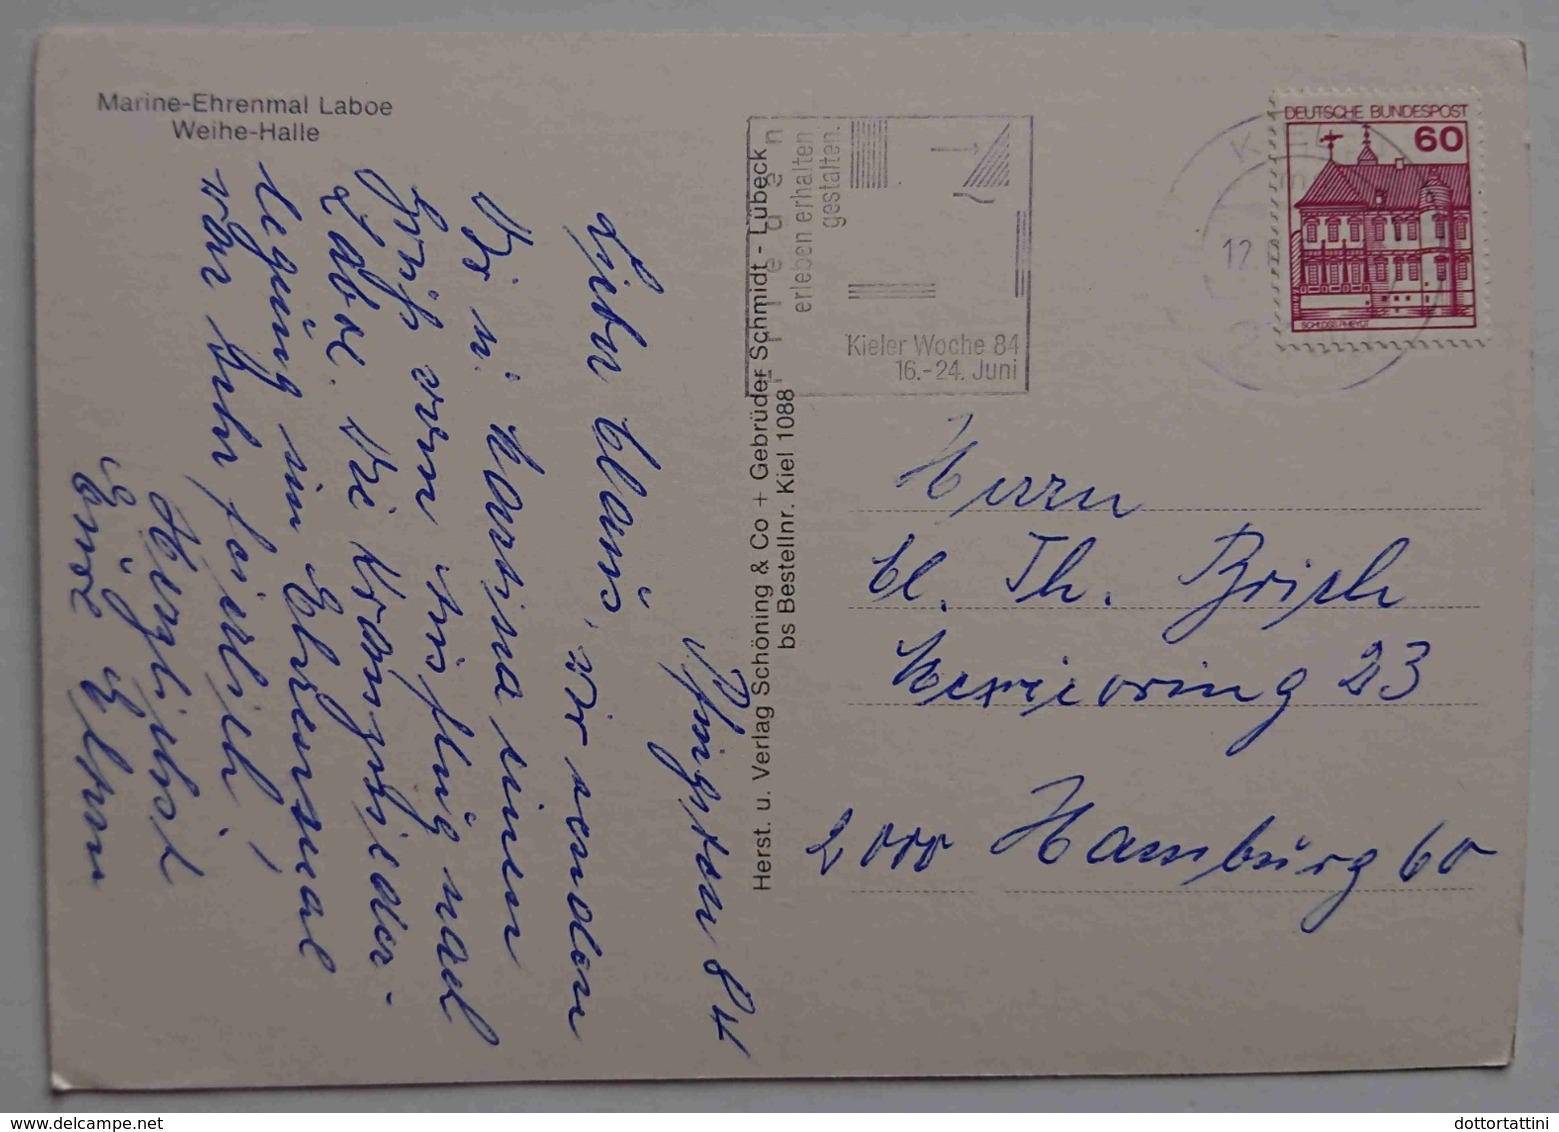 Marine-Ehrenmal Laboe
Weihe-Halle
Pfingsten 84
Lieber Claus, wir senden
Dir u. Karina einen
Gruß vom Ausflug nach
Laboe. Die Kranznieder-
legung im Ehrenmal
war sehr feierlich!
Herzlichst
Eure Eltern
Herst. u. Verlag Schöning & Co + Gebrüder Schmidt - Lübeck
bs Bestellnr. Kiel 1088
erleben erhalten
gestalten.
Kieler Woche 84
16.-24. Juni
12
DEUTSCHE BUNDESPOST
60
SCHLOSS RHEYDT
Herrn
Cl. Th.
23
2000 Hamburg 60
dottortattini